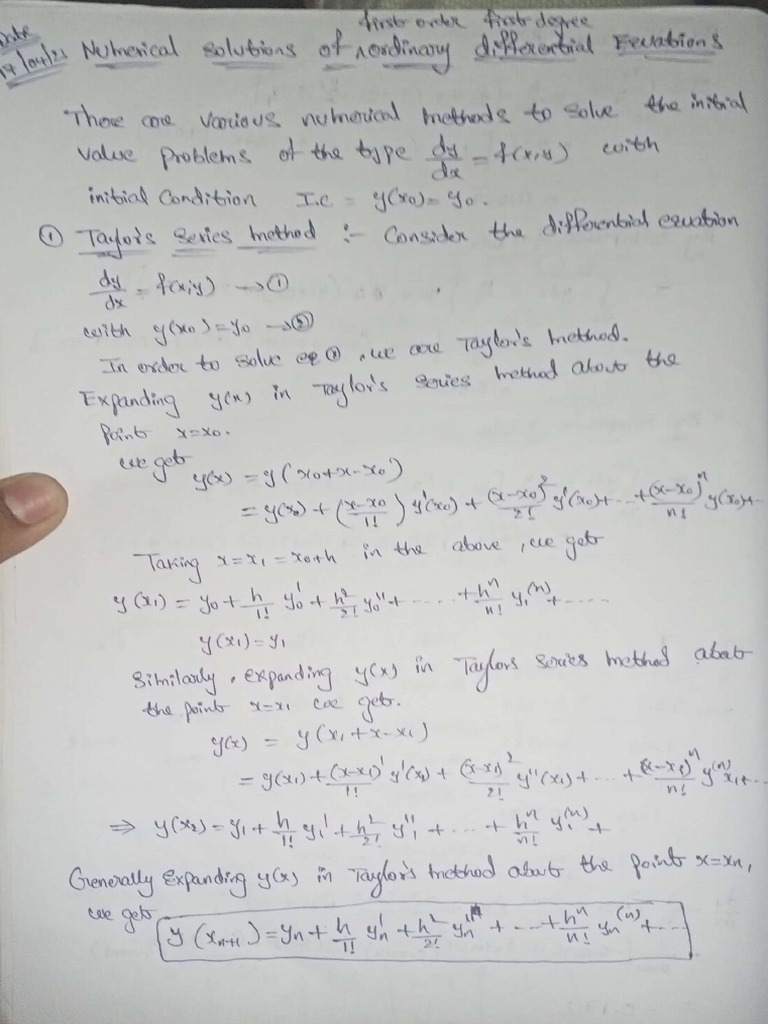 Date
17/04/23
first order first degree
Numerical solutions of ∧ ordinary differential Equations
There are various numerical methods to solve the initial
value problems of the type dy/dx = f(x,y) with
initial condition I.C = y(x₀) = y₀.
① Taylor's series method :- Consider the differential equation
dy/dx = f(x,y) → ①
with y(x₀) = y₀ → ②
In order to solve eq ①, we are Taylor's method.
Expanding y(x) in Taylor's series method about the
point x=x₀.
we get
y(x) = y(x₀+x-x₀)
= y(x₀) + (x-x₀/1!) y'(x₀) + (x-x₀)²/2! y'(x₀)+ ... + (x-x₀)ⁿ/n! y(x₀)+..
Taking x=x₁=x₀+h in the above, we get
y(x₁) = y₀ + h/1! y₀' + h²/2! y₀'' + ..... + hⁿ/n! y₁⁽ⁿ⁾ + .....
y(x₁) = y₁
Similarly, expanding y(x) in Taylors series method about
the point x=x₁ we get.
y(x) = y(x₁+x-x₁)
= y(x₁) + (x-x₁)'/1! y'(x₁) + (x-x₁)²/2! y''(x₁) + ... + (x-x₁)ⁿ/n! y⁽ⁿ⁾x₁+...
⇒ y(x₂) = y₁ + h/1! y₁' + h²/2! y₁'' + ... + hⁿ/n! y₁⁽ⁿ⁾ +
Generally Expanding y(x) in Taylor's method about the point x=xₙ,
we get
y(xₙ₊₁) = yₙ + h/1! yₙ' + h²/2! yₙ'' + ... + hⁿ/n! yₙ⁽ⁿ⁾ + ...